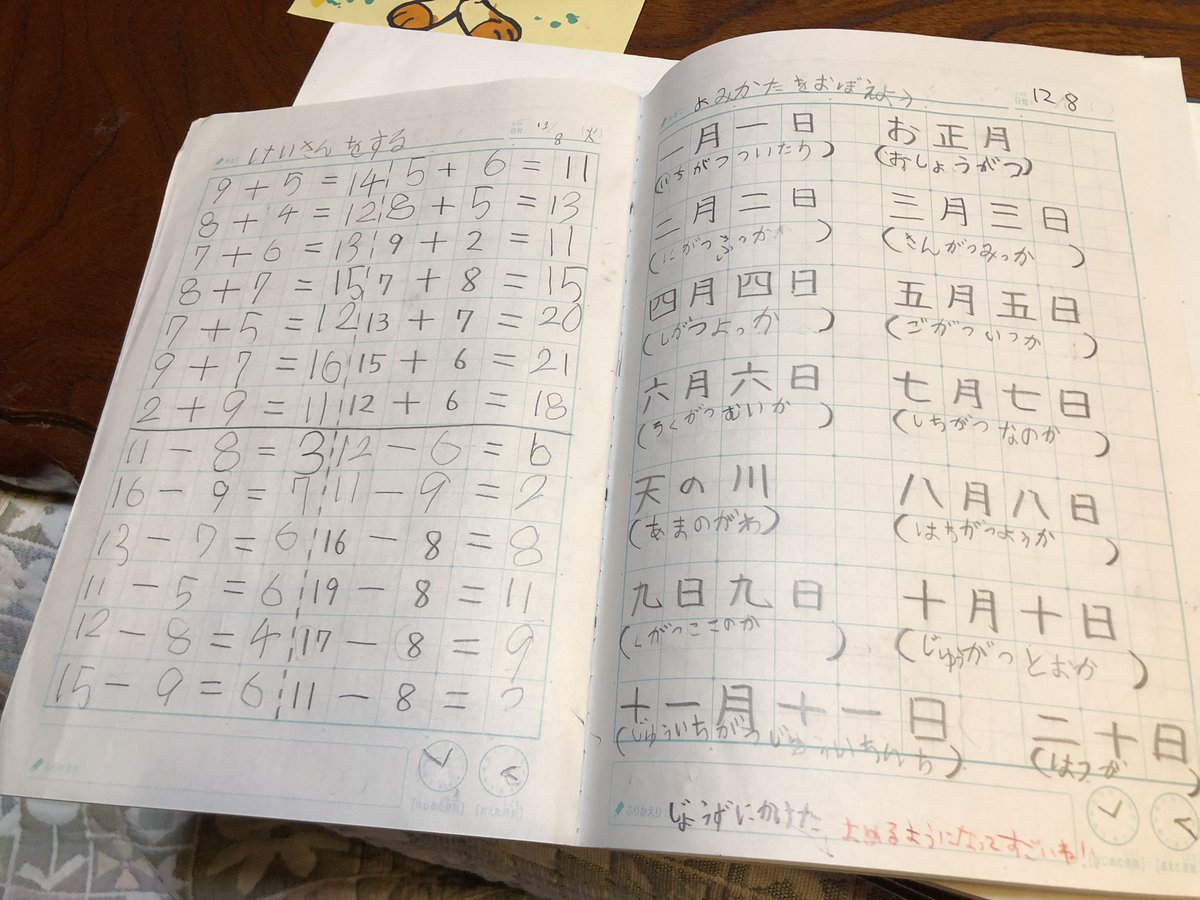 けいさんをする
12/8 (火)
9+5=14 5+6=11
8+4=12 8+5=13
7+6=13 9+2=11
8+7=15 7+8=15
7+5=12 13+7=20
9+7=16 15+6=21
2+9=11 12+6=18
11-8=3 12-6=6
16-9=7 11-9=2
13-7=6 16-8=8
11-5=6 19-8=11
12-8=4 17-8=9
15-9=6 11-8=
よみかたをおぼえよう
12/8
一月一日 お正月
(いちがつついたち) (おしょうがつ)
二月二日 三月三日
(にがつふつか) (さんがつみっか)
四月四日 五月五日
(しがつよっか) (ごがついつか)
六月六日 七月七日
(ろくがつむいか) (しちがつなのか)
天の川 八月八日
(あまのがわ) (はちがつようか)
九日九日 十月十日
(くがつここのか) (じゅうがつとおか)
十一月十一日 二十日
(じゅういちがつじゅういちにち) (はつか)
ふりかえり じょうずにかけた
よめるようになってすごいね!!